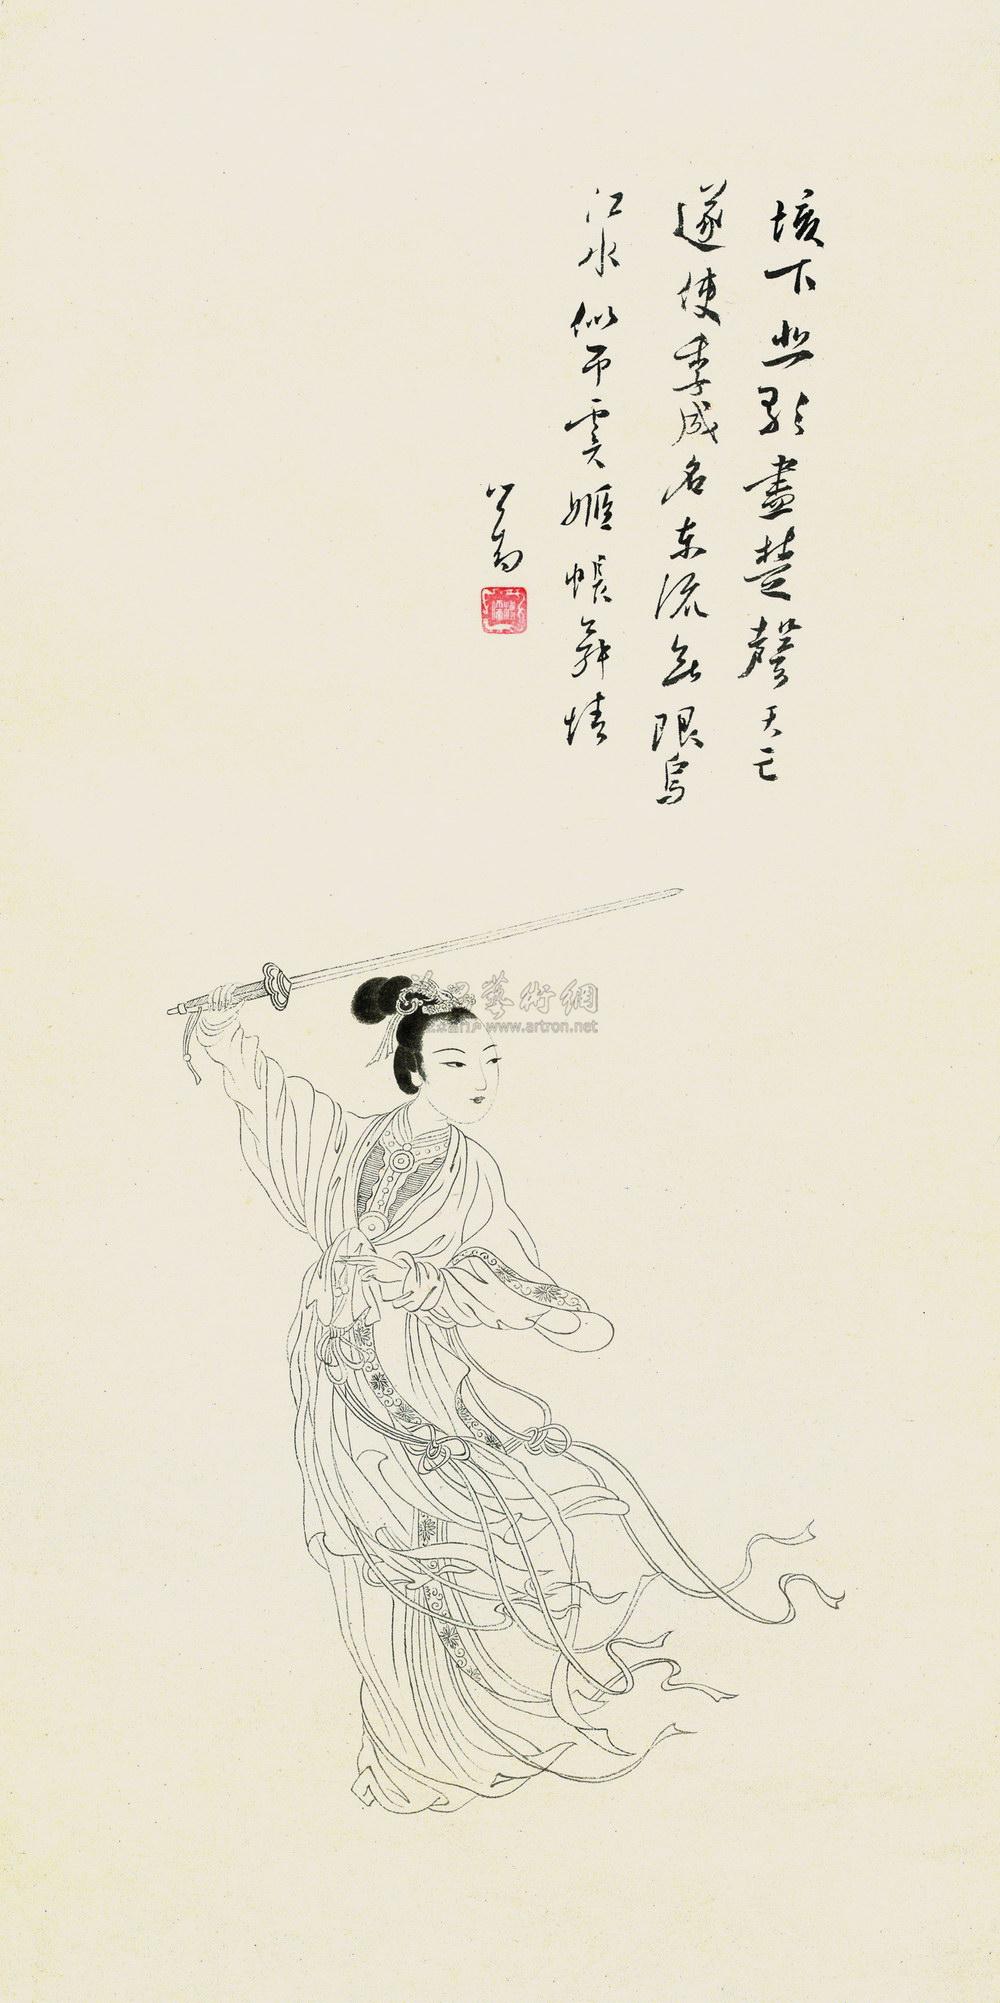 垓下悲歌盡楚聲天亡
遂使季成名東流無限烏
江水似吊虞姬帳舞情
心畬
藝術網
www.artron.net